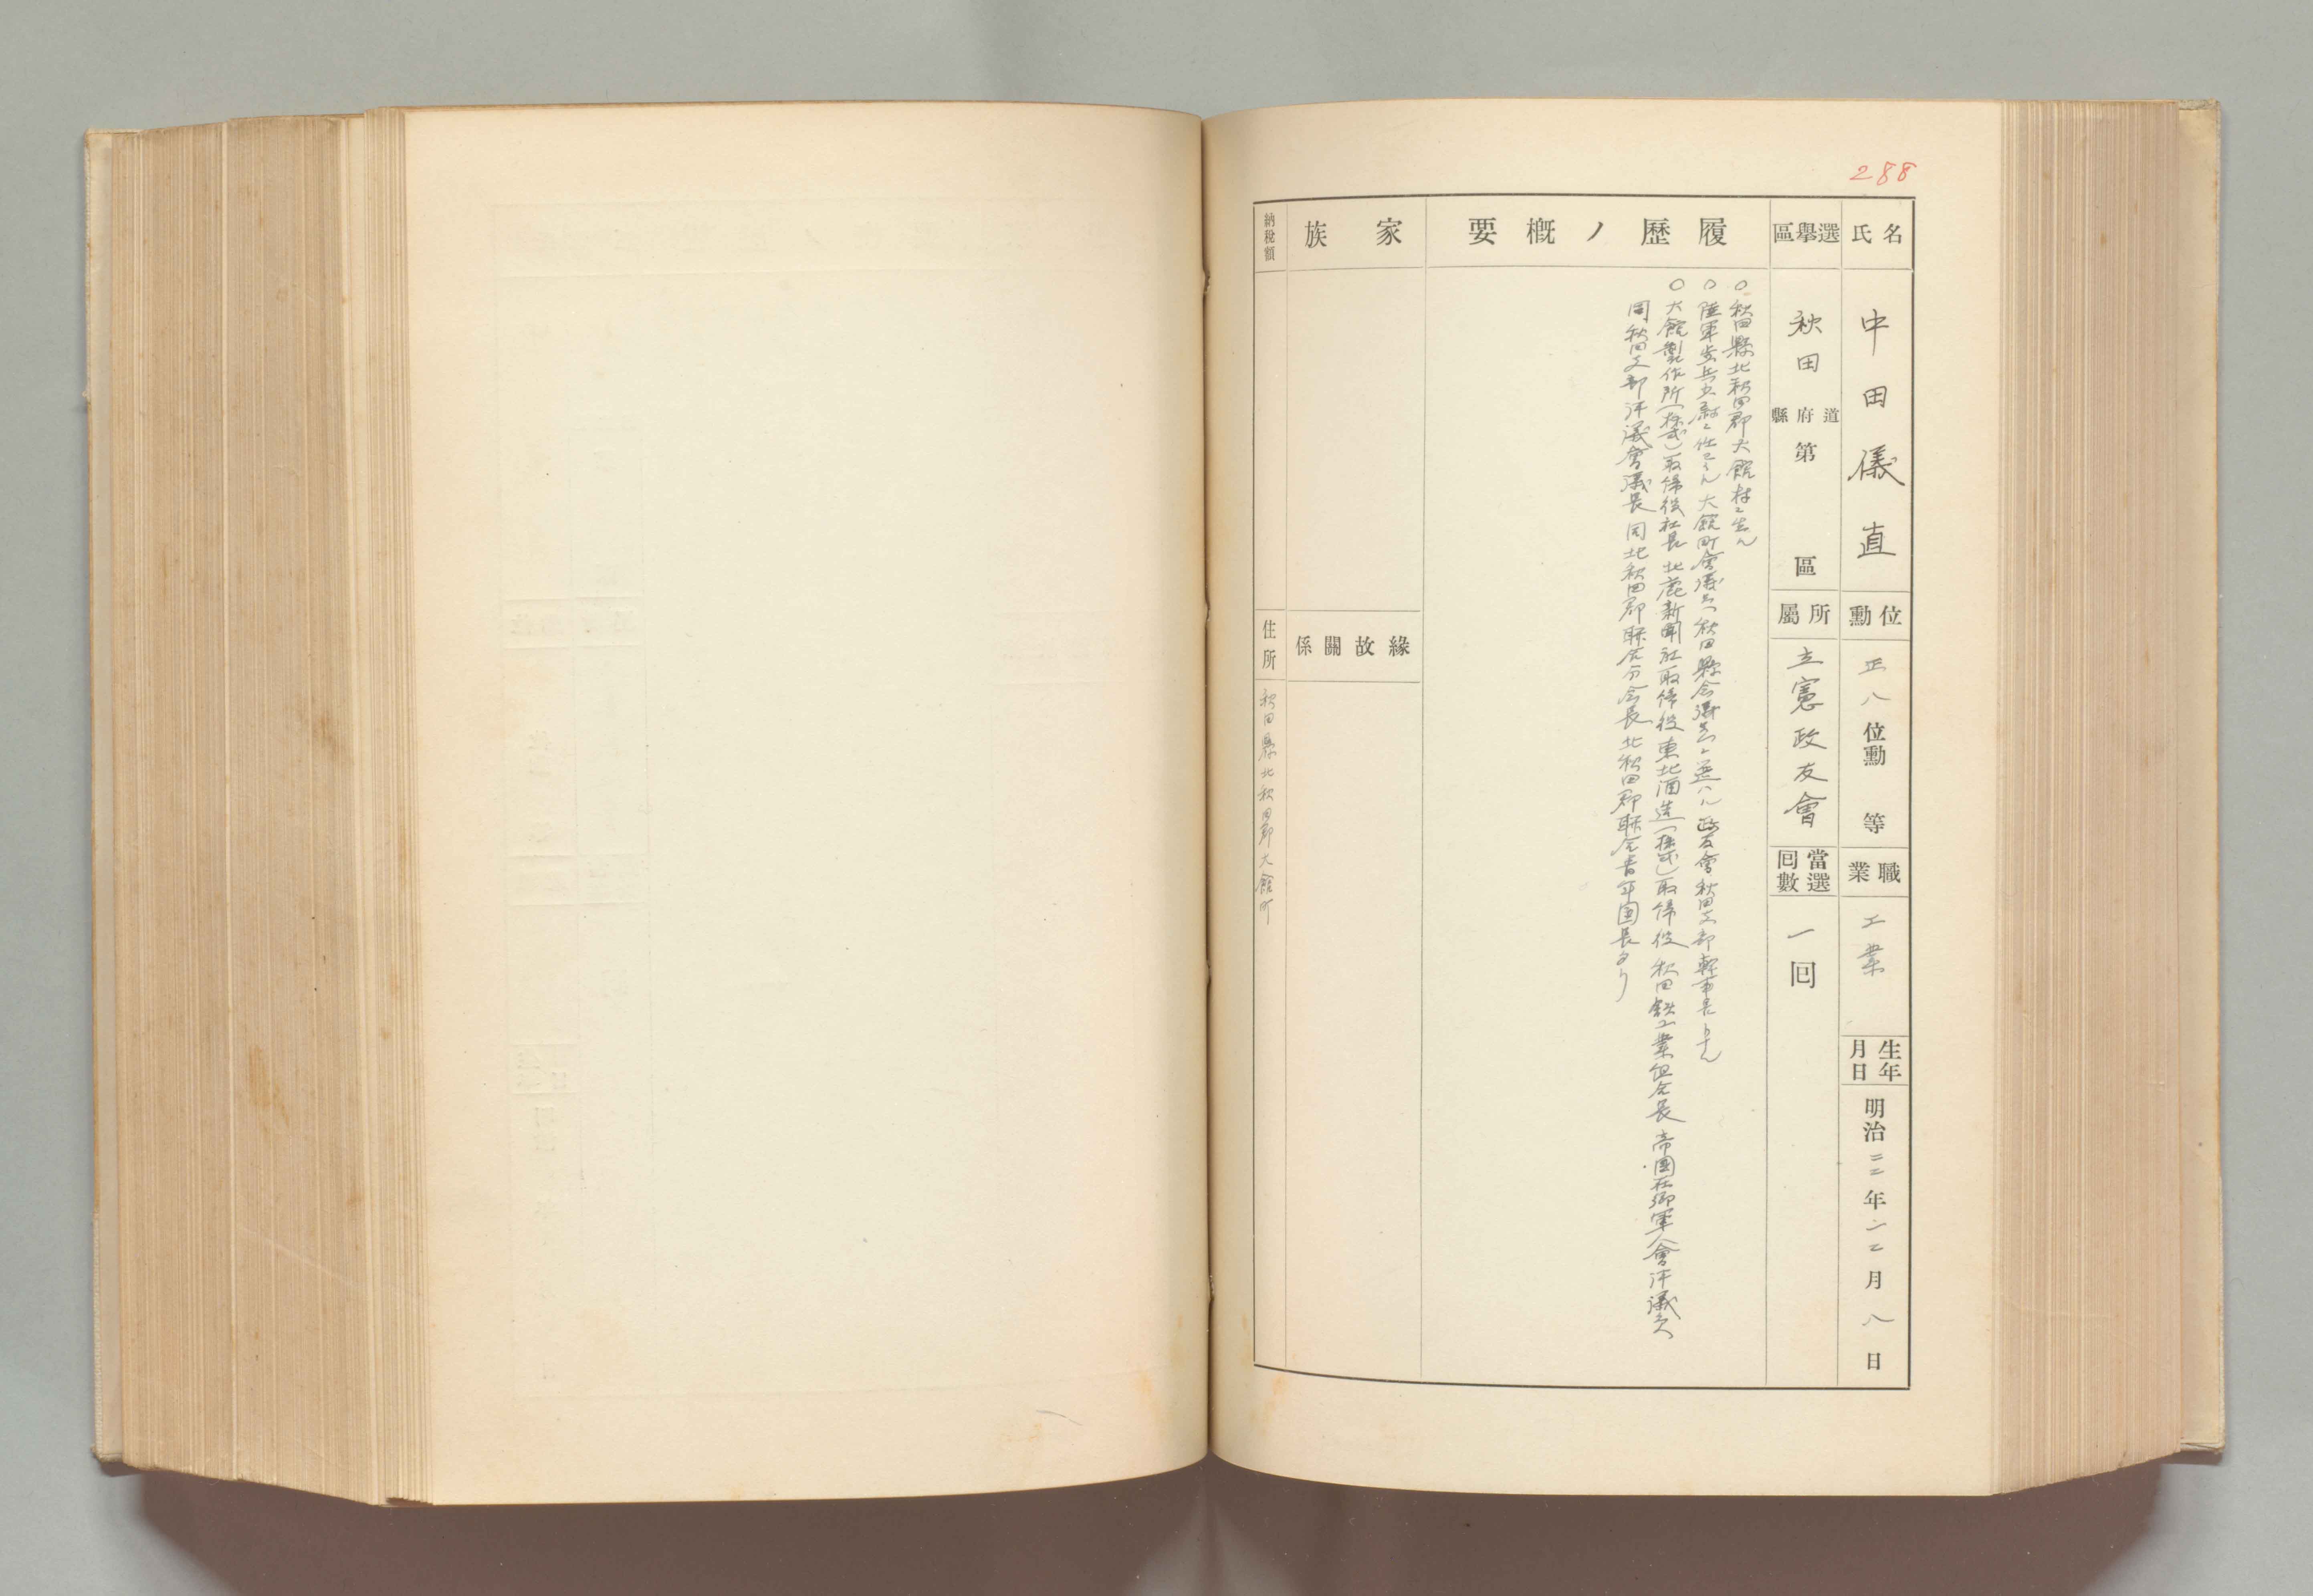 288
氏名
中田儀直
位勳
正八位勳 等
職業
工業
生年月日
明治二二年一二月八日
選擧區
秋田 道府縣 第 區
所屬
立憲政友會
當選回數
一回
履歷ノ概要
○秋田縣北秋田郡大館村ニ生ル
○陸軍歩兵少尉ニ任セラル 大館町會議員 秋田縣會議員ニ選ハル 政友會秋田支部幹事長タリ
○大館製作所(株式)取締役社長 北鹿新聞社取締役 東北酒造(株式)取締役 秋田鉄工業組合長 帝国在郷軍人會評議員
同秋田支部評議會議長 同北秋田郡聯合分会長 北秋田郡聯合青年団長タリ
家族
緣故關係
納稅額
住所
秋田縣北秋田郡大館町